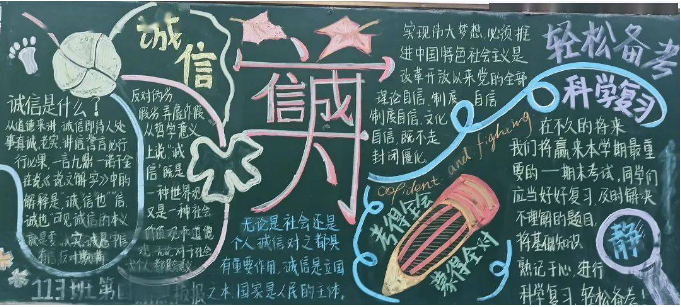 诚信
诚信是什么?
从道德来讲,诚信即待人处
事真诚、老实、讲信誉,言必行
行必果,一言九鼎,一诺千金
在《说文解字》中的
解释是"诚信也""信
诚也"可见诚信的本义
反对伪劣
假冒弄虚作假
从哲学意义
上说"诚
信"既是
一种世界观
又是一种社会
价值观和道德
观
113班第
诚信
无论是社会还是
个人,诚信对之都具
有重要作用,诚信是立国
之本,国家是人民的主体。
实现伟大梦想,必须推
进中国特色社会主义是
改革开放以来党的全部
理论自信、制度 自信
制度自信、文化
自信,既不走
封闭僵化
confident and fighting
考得全会
蒙得全对
轻松备考
科学复习
在不久的将来
我们将赢来本学期最重
要的一期末考试,同学们
应当好好复习,及时解决
不理解的题目
将基础知识
熟记于心,进行
科学复习,轻松备考!
静